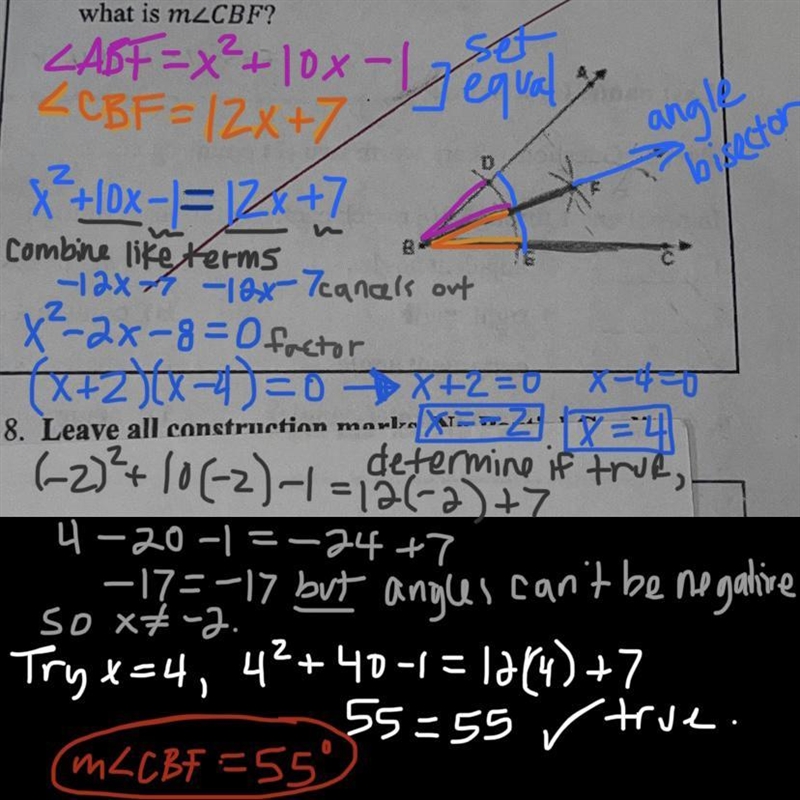 what is m∠CBF?
∠ABF = x² + 10x - 1
∠CBF = 12x + 7
] set equal
angle bisector
A
D
F
B
E
C
x² + 10x - 1 = 12x + 7
combine like terms
-12x - 7 -12x - 7 cancels out
x² - 2x - 8 = 0 factor
(x+2)(x-4) = 0 → x+2=0 x-4=0
x=-2 x=4
8. Leave all construction marks.
(-2)² + 10(-2) - 1 = 12(-2) + 7 determine if true,
4 - 20 - 1 = -24 + 7
-17 = -17 but angles can't be negative
so x ≠ -2.
Try x = 4, 4² + 40 - 1 = 12(4) + 7
55 = 55 ✓ true.
m∠CBF = 55°